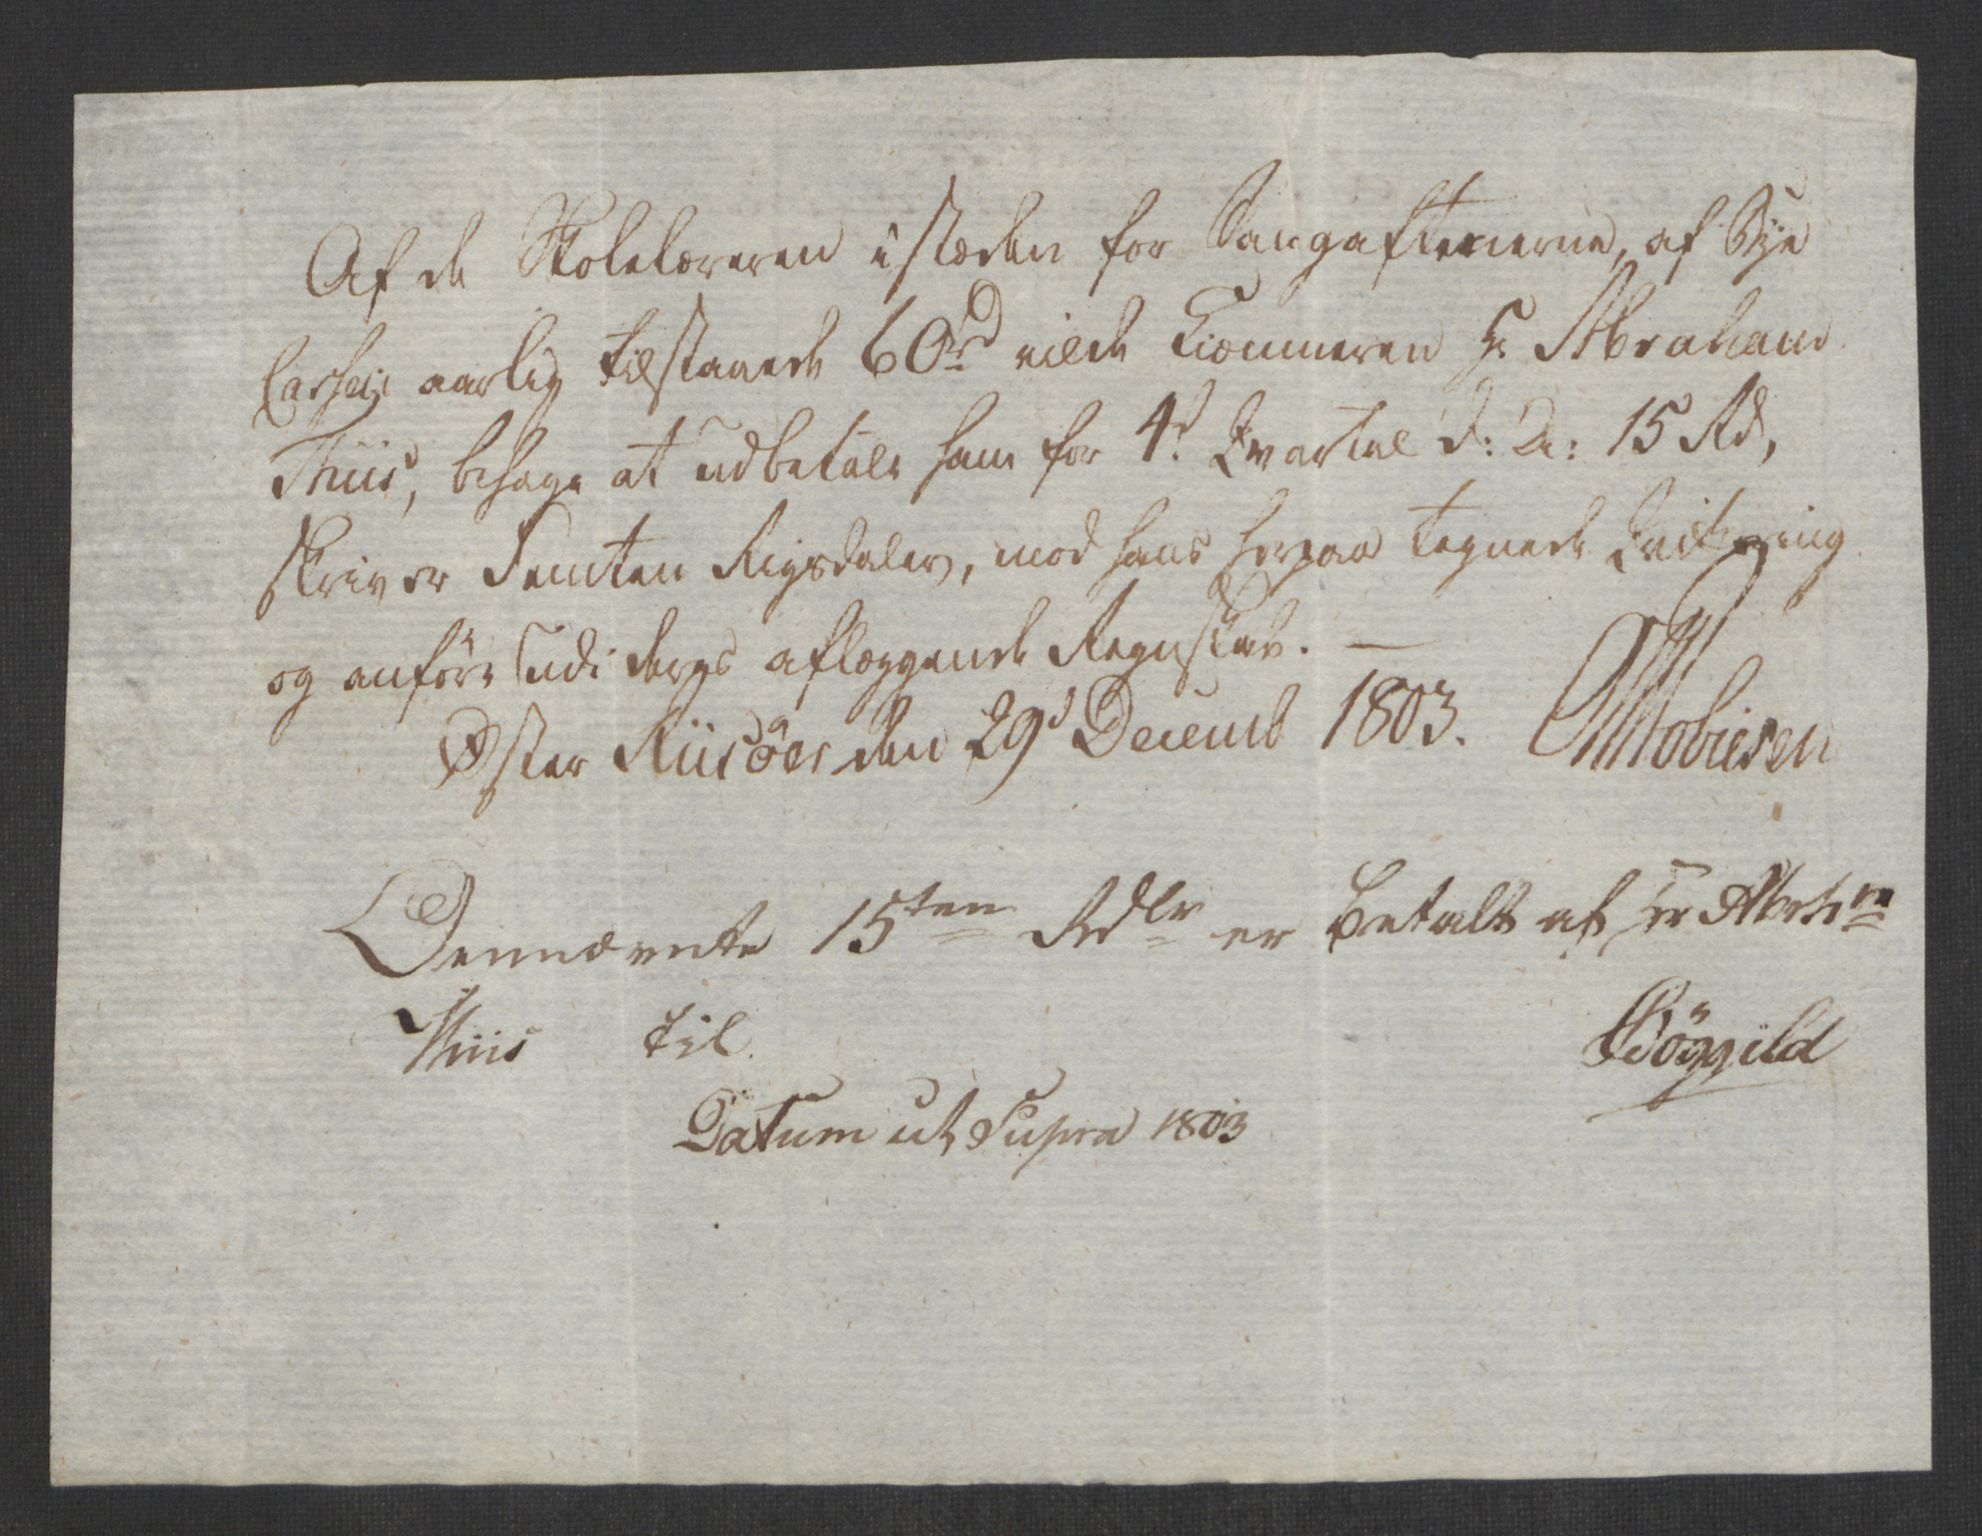 Af de Skolelæreren istæden for Sangaftenerne, af Bye
Cassen aarlig tilstaaede 60 rd vilde Kiæmneren Hr Abraham
Thiis, behage at udbetale ham for 4d Qvartal d: A: 15 Rd,
skriver Femten Rigsdaler, mod hans herpaa tegnede Qvittering
og anføre udi deres aflæggende Regnskab. —
Øster Riisöer den 29d Decemb 1803.
Bennævnte 15ten Rdlr er betalt af Hr Abrh:m
Thiis til
Böggild
Datum ut Supra 1803